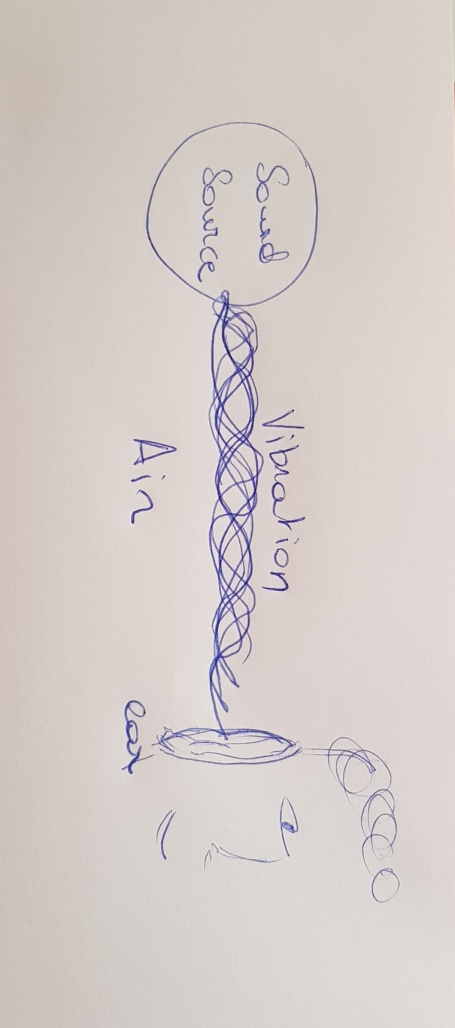 Sound
Source
Vibration
Air
ear